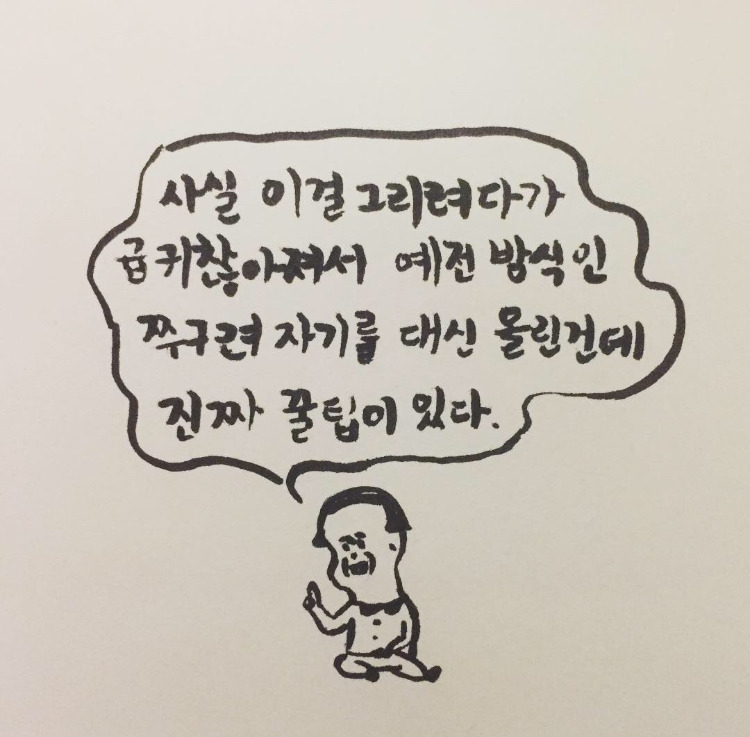 사실 이걸 그리려다가
급 귀찮아져서 예전 방식인
쭈구려 자기를 대신 올린건데
진짜 꿀팁이 있다.